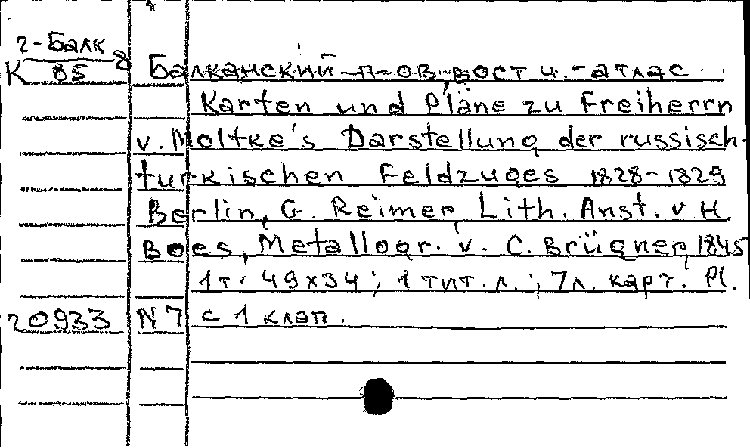 2-Балк
К 85 8 Балканский п-ов, вост ч. - атлас
Karten und Pläne zu Freiherrn
v. Moltke's Darstellung der russisch-
turkischen Feldzuges 1828-1829
Berlin, G. Reimer, Lith. Anst. v H
Boes, Metallogr. v. C. Brügner, 1845
1 т. 49x34; 1 тит. л.; 7л. карт. Pl.
20933 N 7 с 1 клап.